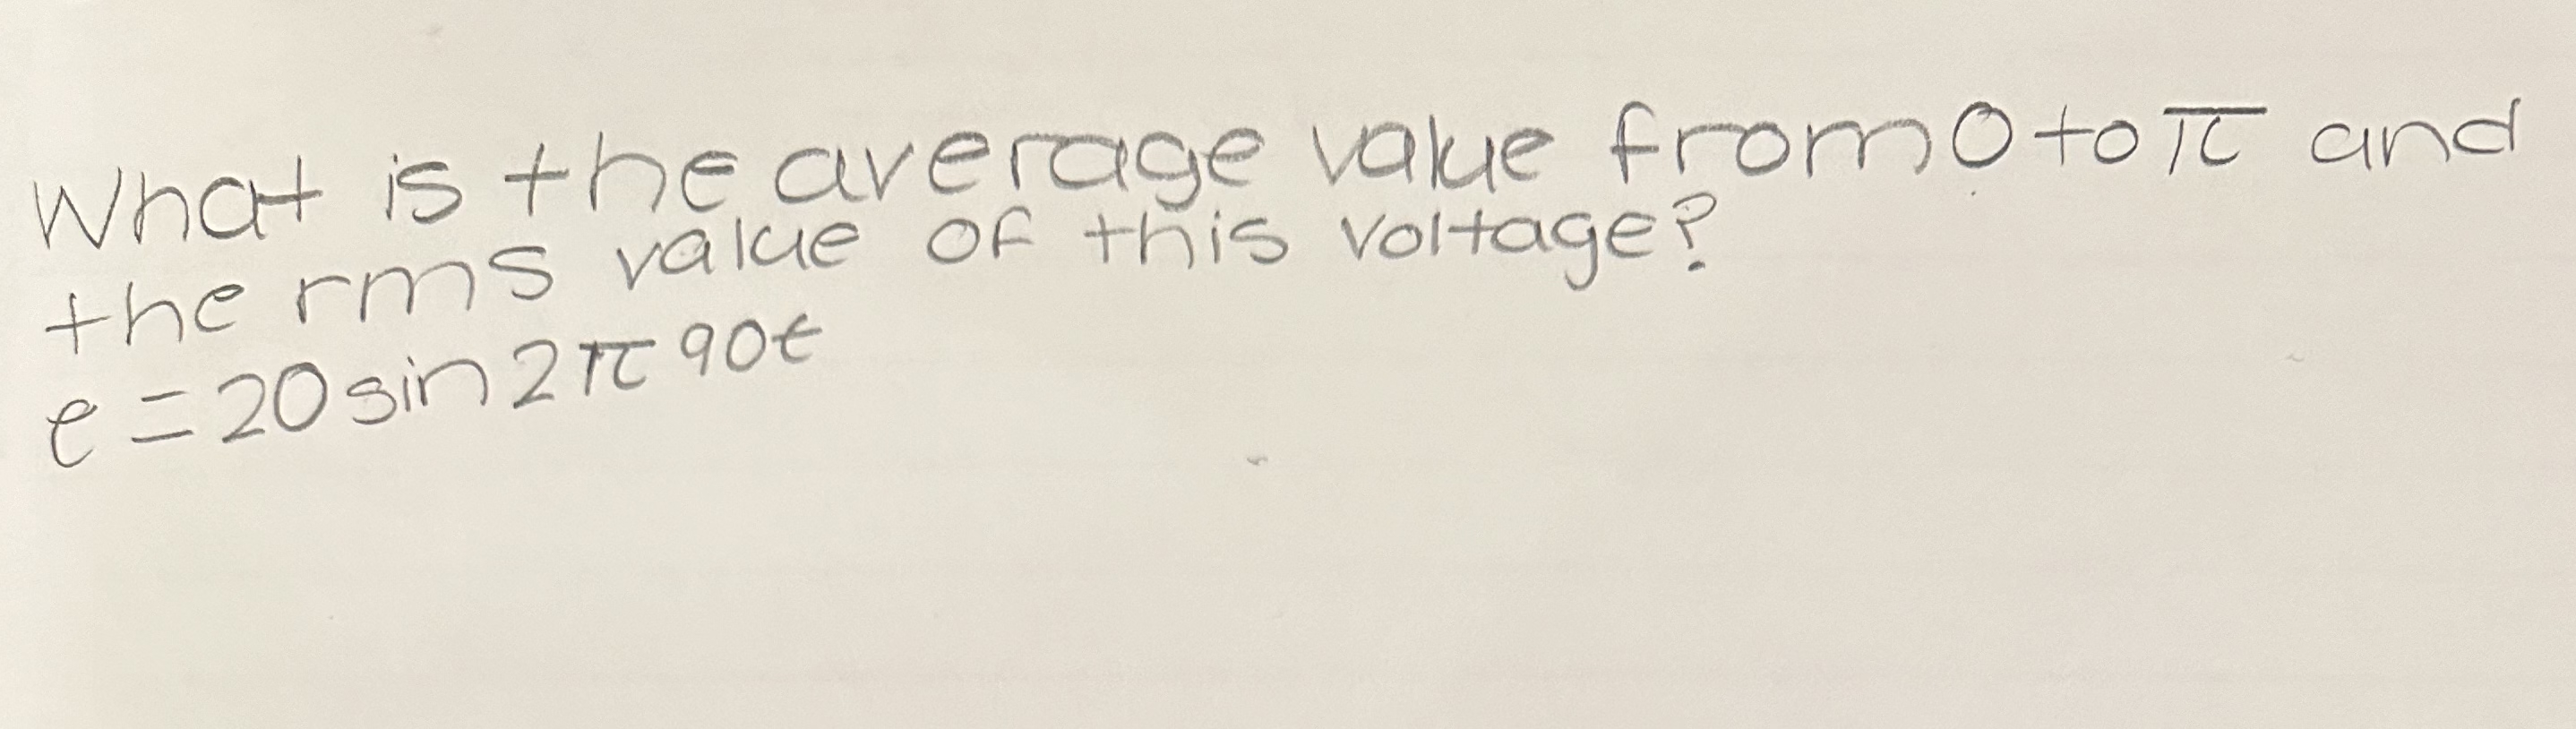 What is the average value from 0 to π and
the rms value of this voltage?
e = 20 sin 2π 90t